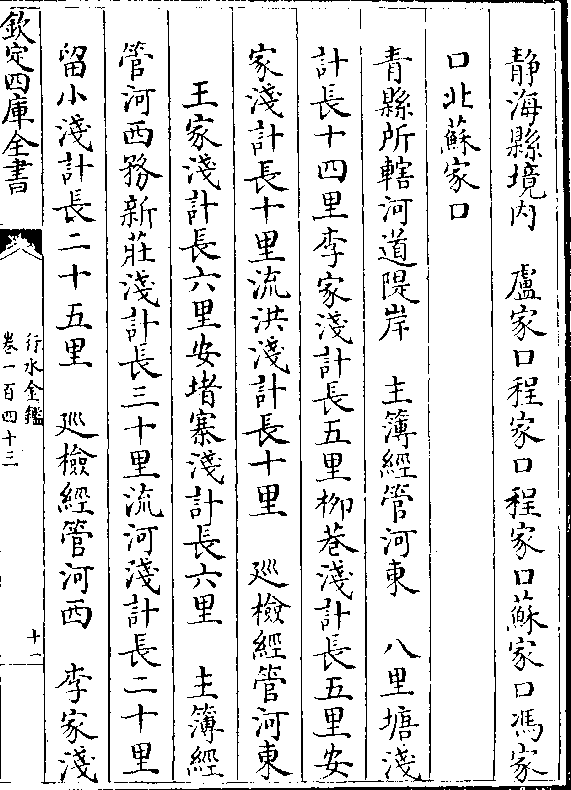 静海縣境内　盧家口程家口程家口蘇家口馮家
口北蘇家口
青縣所轄河道隄岸　主簿經管河東　八里塘淺
計長十四里李家淺計長五里柳巷淺計長五里安
家淺計長十里流洪淺計長十里　巡檢經管河東
王家淺計長六里安堵寨淺計長六里　主簿經
管河西務新莊淺計長三十里流河淺計長二十里
留小淺計長二十五里　巡檢經管河西　李家淺
欽定四庫全書
行水金鑑
卷一百四十三
十一